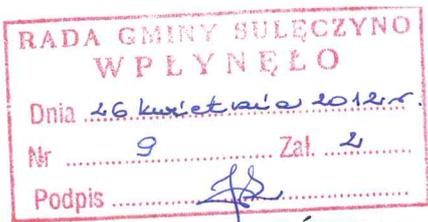 RADA GMINY SULĘCZYNO
WPŁYNĘŁO
Dnia 26 kwietnia 2012 r.
Nr 9 Zał. 2
Podpis